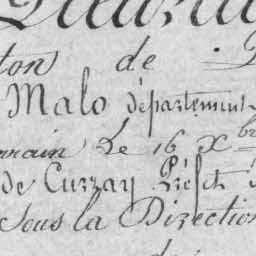 ton de
Malo département
main Le 16 Xbr
de Curzay Préfet
sous la Direction